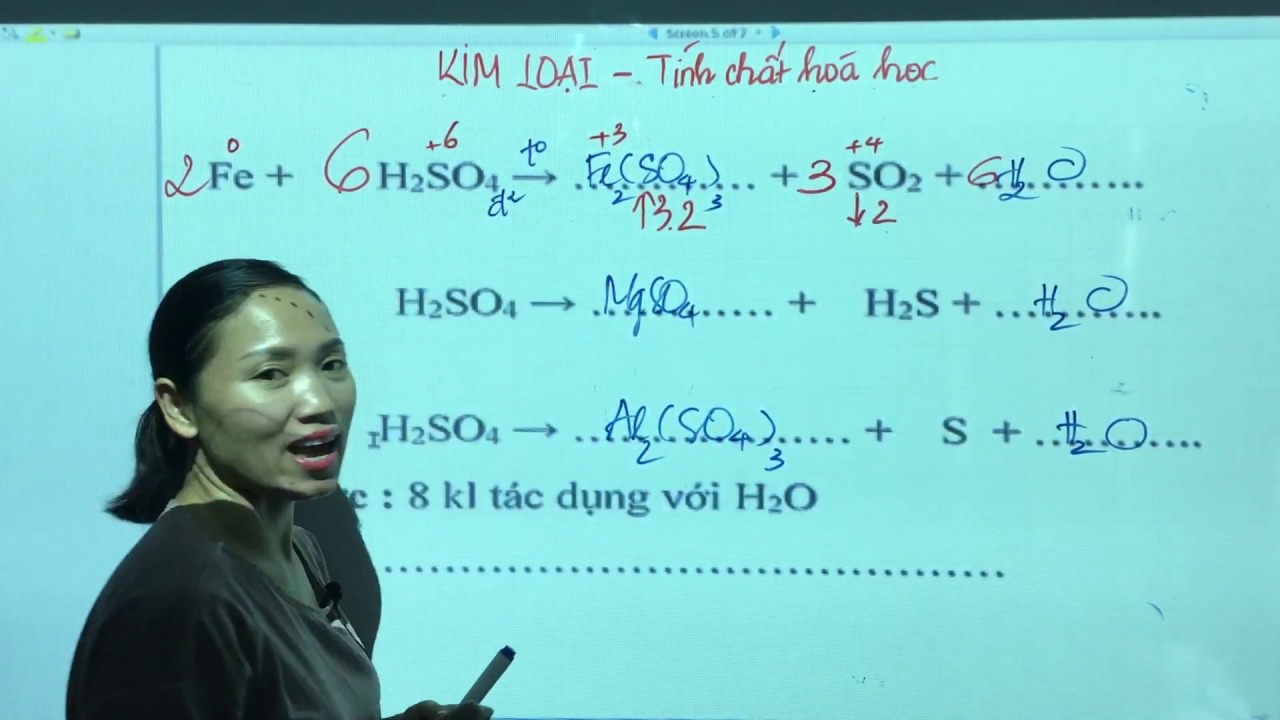 Screen 5 of 7
KIM LOẠI – Tính chất hoá học
0 +6 t⁰ +3 +4
2 Fe + 6 H₂SO₄ đ → Fe₂(SO₄)₃ + 3 SO₂ + 6 H₂O
↑3.2 ↓2
H₂SO₄ → ..MgSO₄...... + H₂S + ...H₂O......
H₂SO₄ → ..Al₂(SO₄)₃...... + S + ..H₂O....
: 8 kl tác dụng với H₂O